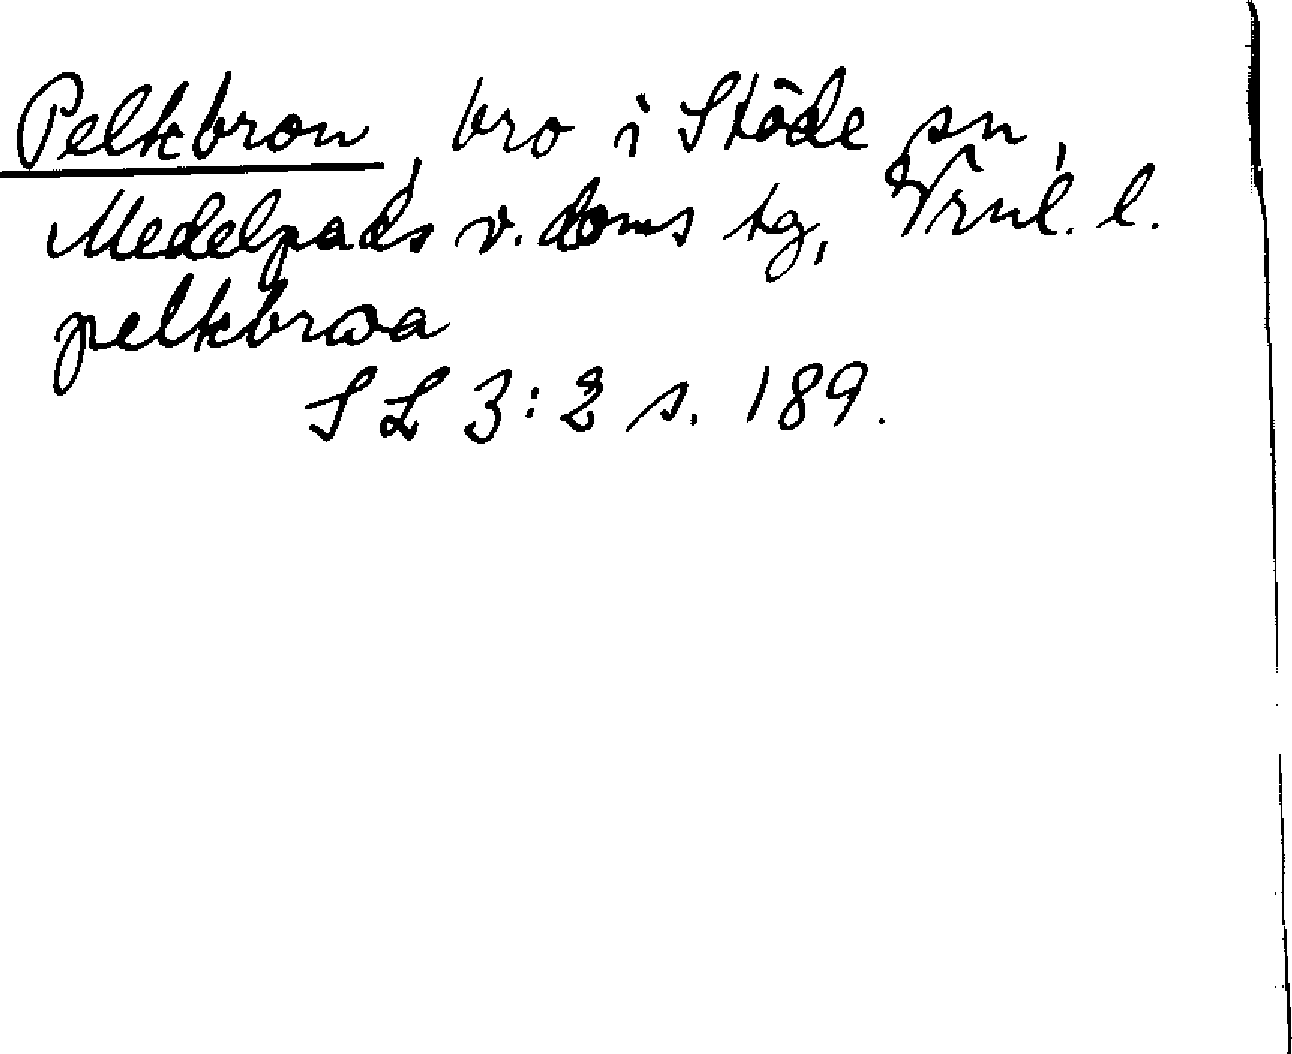 Pelkbron, bro i Stöde sn,
Medelpads v. doms tg, Vrnl. l.
pelkbrωa
S L 3:2 s. 189.